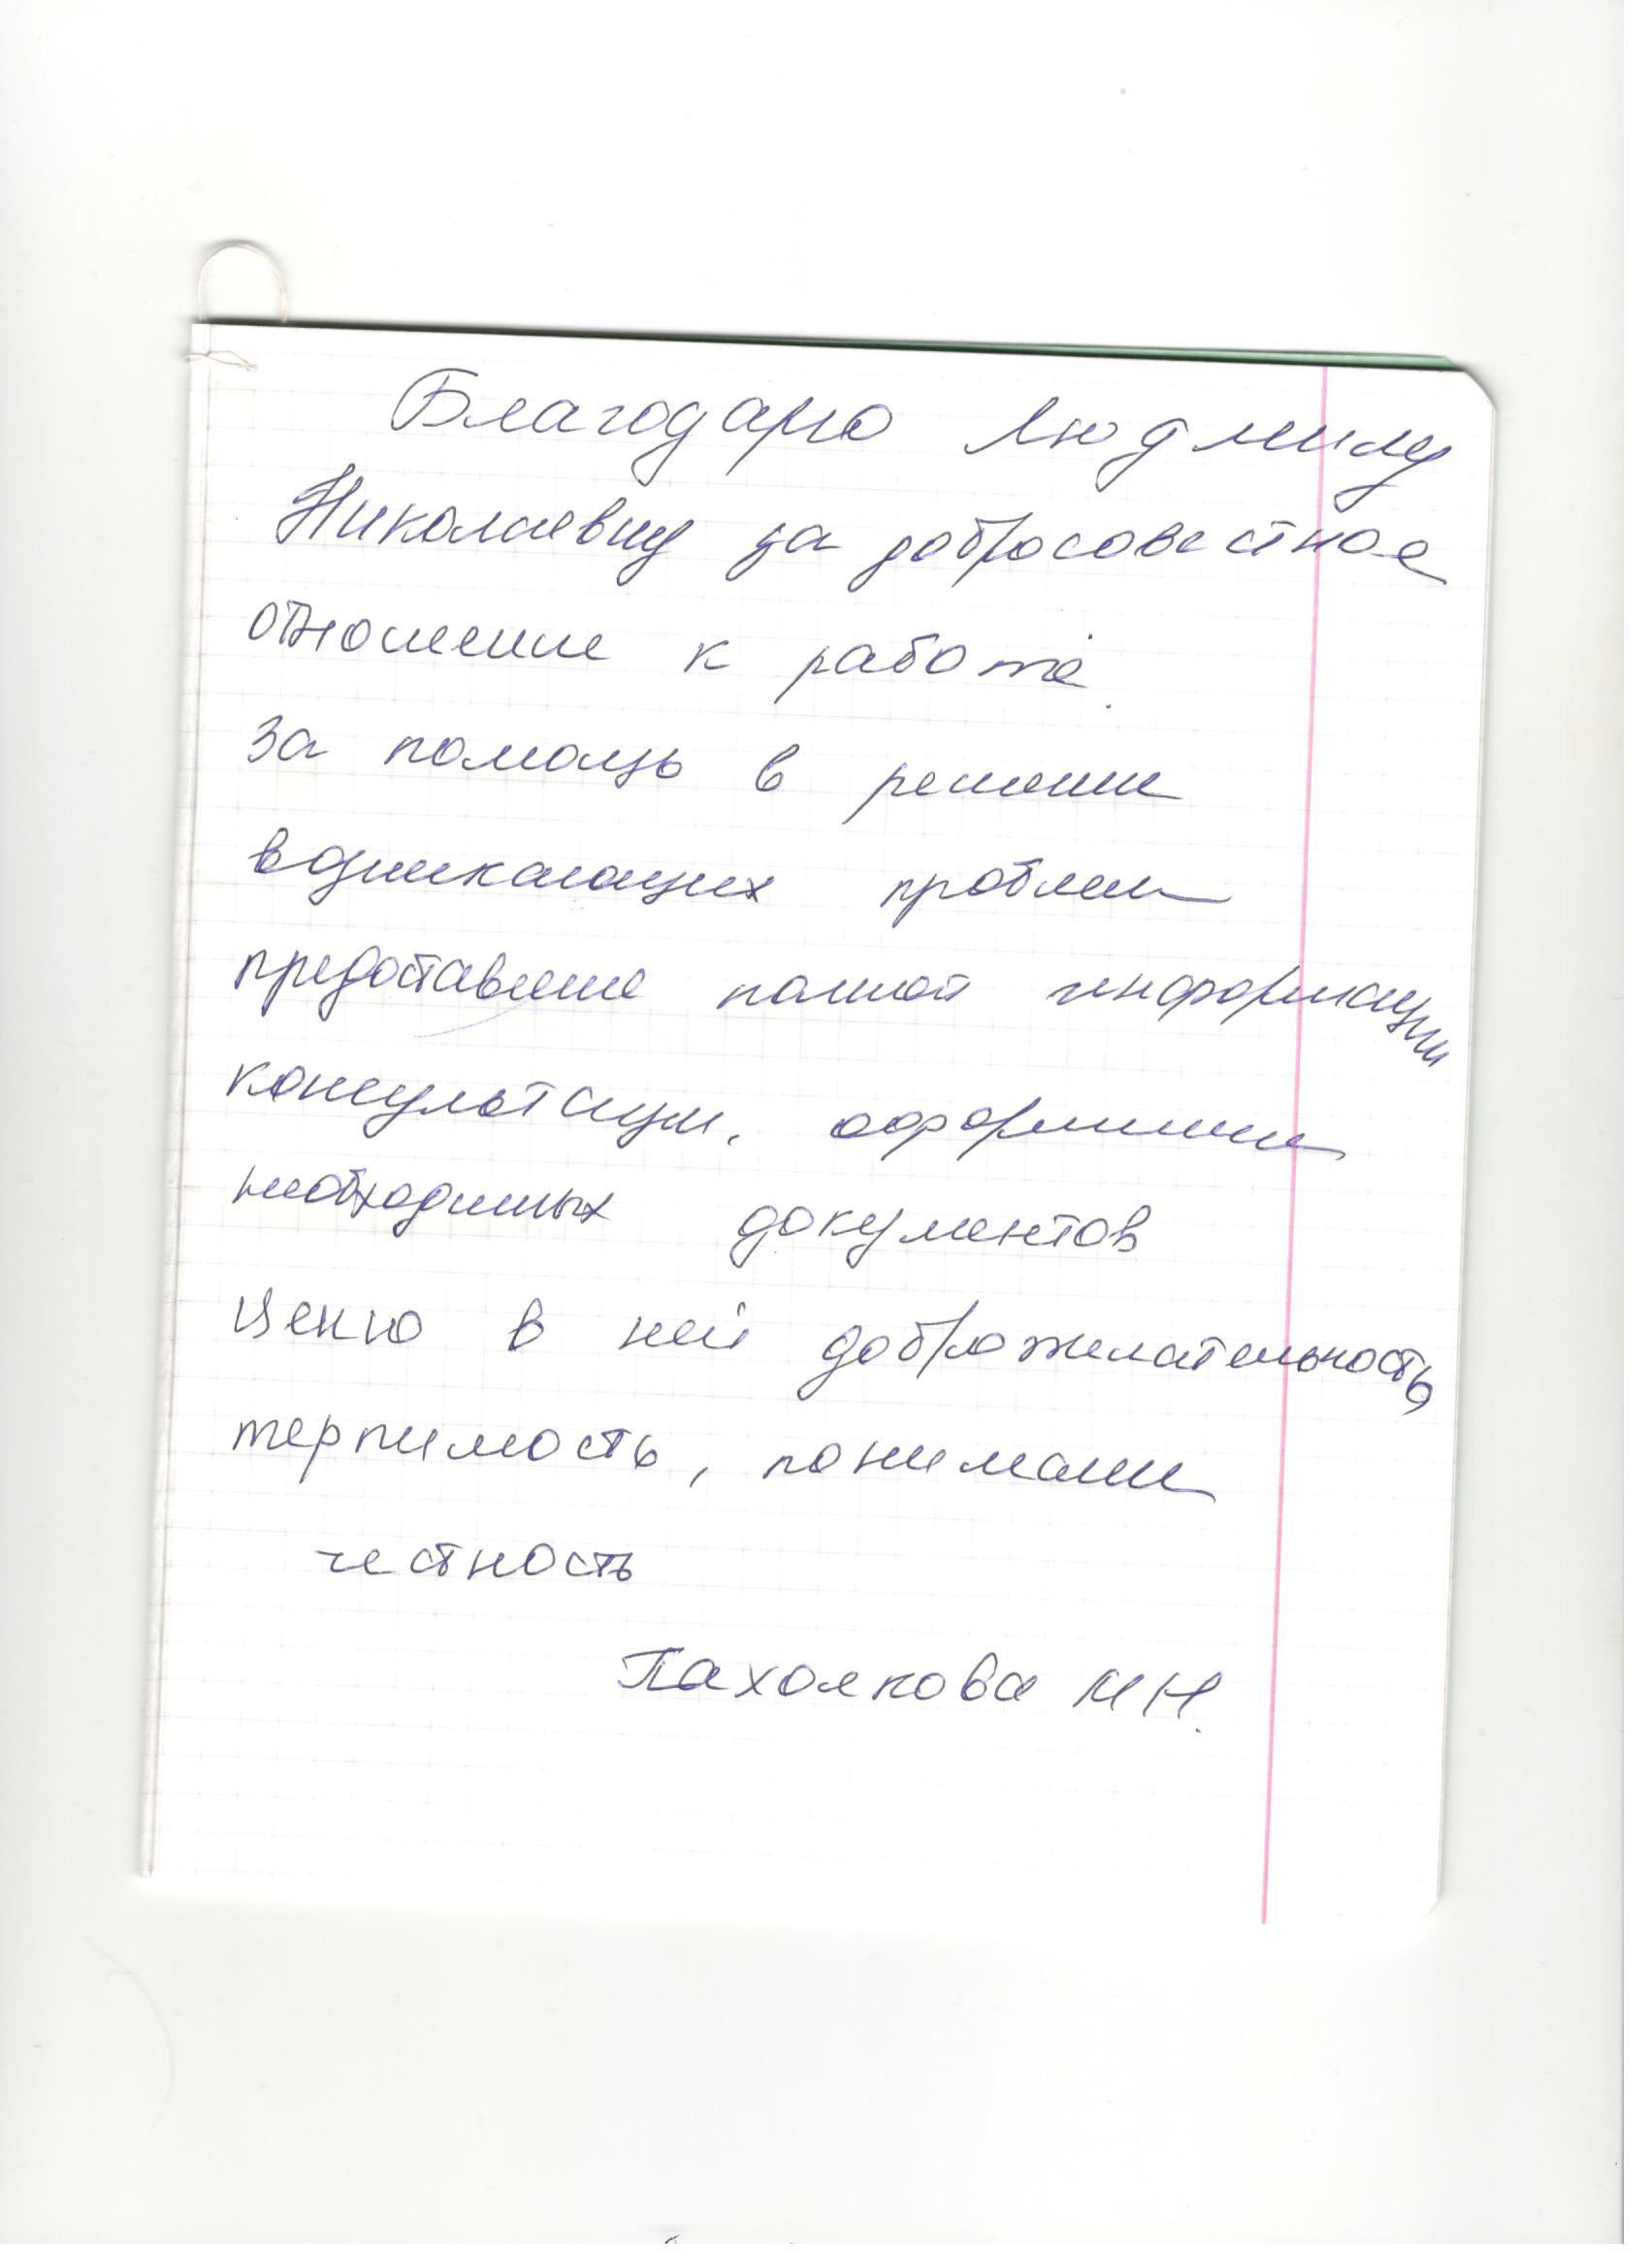 Благодарю Людмилу
Николаевну за добросовестное
отношение к работе.
За помощь в решении
возникающих проблем
предоставление полной информации
консультации, оформлении
необходимых документов
Ценю в ней доброжелательность,
терпимость, понимание
честность
Пахолкова И Н.